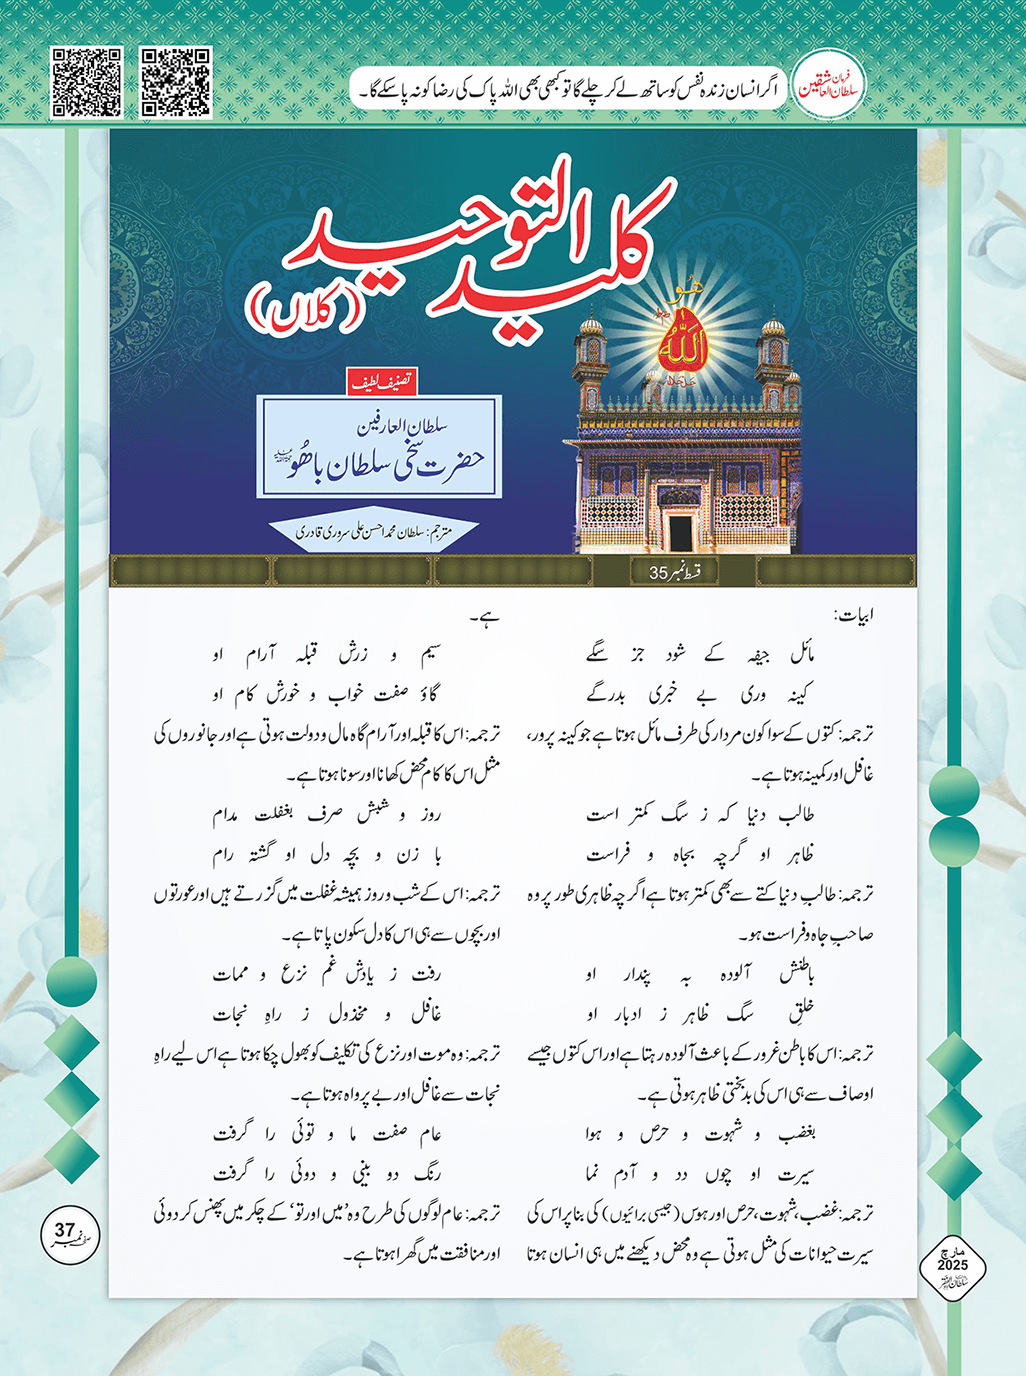 اگر انسان زندہ نفس کو ساتھ لے کر چلے گا تو کبھی بھی اللہ پاک کی رضا کو نہ پا سکے گا۔
فرمان
سلطان العاشقین
کلید التوحید
(کلاں)
ھُو
اللہ
تصنیف لطیف
سلطان العارفین
حضرت سخی سلطان باھُو
مترجم: سلطان محمد احسن علی سروری قادری
قسط نمبر 35
ابیات:
مائل جیفہ کے شود جز سگے
کینہ وری بے خبری بدرگے
ترجمہ: کتوں کے سوا کون مردار کی طرف مائل ہوتا ہے جو کینہ پرور،
غافل اور کمینہ ہوتا ہے۔
طالب دنیا کہ ز سگ کمتر است
ظاہر او گرچہ بجاہ و فراست
ترجمہ: طالبِ دنیا کتے سے بھی کمتر ہوتا ہے اگرچہ ظاہری طور پر وہ
صاحبِ جاہ و فراست ہو۔
باطنش آلودہ بہ پندار او
خلقِ سگ ظاہر ز ادبار او
ترجمہ: اس کا باطن غرور کے باعث آلودہ رہتا ہے اور اس کتوں جیسے
اوصاف سے ہی اس کی بدبختی ظاہر ہوتی ہے۔
بغضب و شہوت و حرص و ہوا
سیرت او چوں دد و آدم نما
ترجمہ: غضب، شہوت، حرص اور ہوس (جیسی برائیوں) کی بنا پر اس کی
سیرت حیوانات کی مثل ہوتی ہے وہ محض دیکھنے میں ہی انسان ہوتا
ہے۔
سیم و زرش قبلہ آرام او
گاؤ صفت خواب و خورش کام او
ترجمہ: اس کا قبلہ اور آرام گاہ مال و دولت ہوتی ہے اور جانوروں کی
مثل اس کا کام محض کھانا اور سونا ہوتا ہے۔
روز و شبش صرف بغفلت مدام
با زن و بچہ دل او گشتہ رام
ترجمہ: اس کے شب و روز ہمیشہ غفلت میں گزرتے ہیں اور عورتوں
اور بچوں سے ہی اس کا دل سکون پاتا ہے۔
رفت ز یادش غم نزع و ممات
غافل و مخذول ز راہِ نجات
ترجمہ: وہ موت اور نزع کی تکلیف کو بھول چکا ہوتا ہے اس لیے راہِ
نجات سے غافل اور بے پرواہ ہوتا ہے۔
عام صفت ما و توئی را گرفت
رنگ دو بینی و دوئی را گرفت
ترجمہ: عام لوگوں کی طرح وہ ’میں اور تو‘ کے چکر میں پھنس کر دوئی
اور منافقت میں گھرا ہوتا ہے۔
37
صفحہ نمبر
مارچ
2025